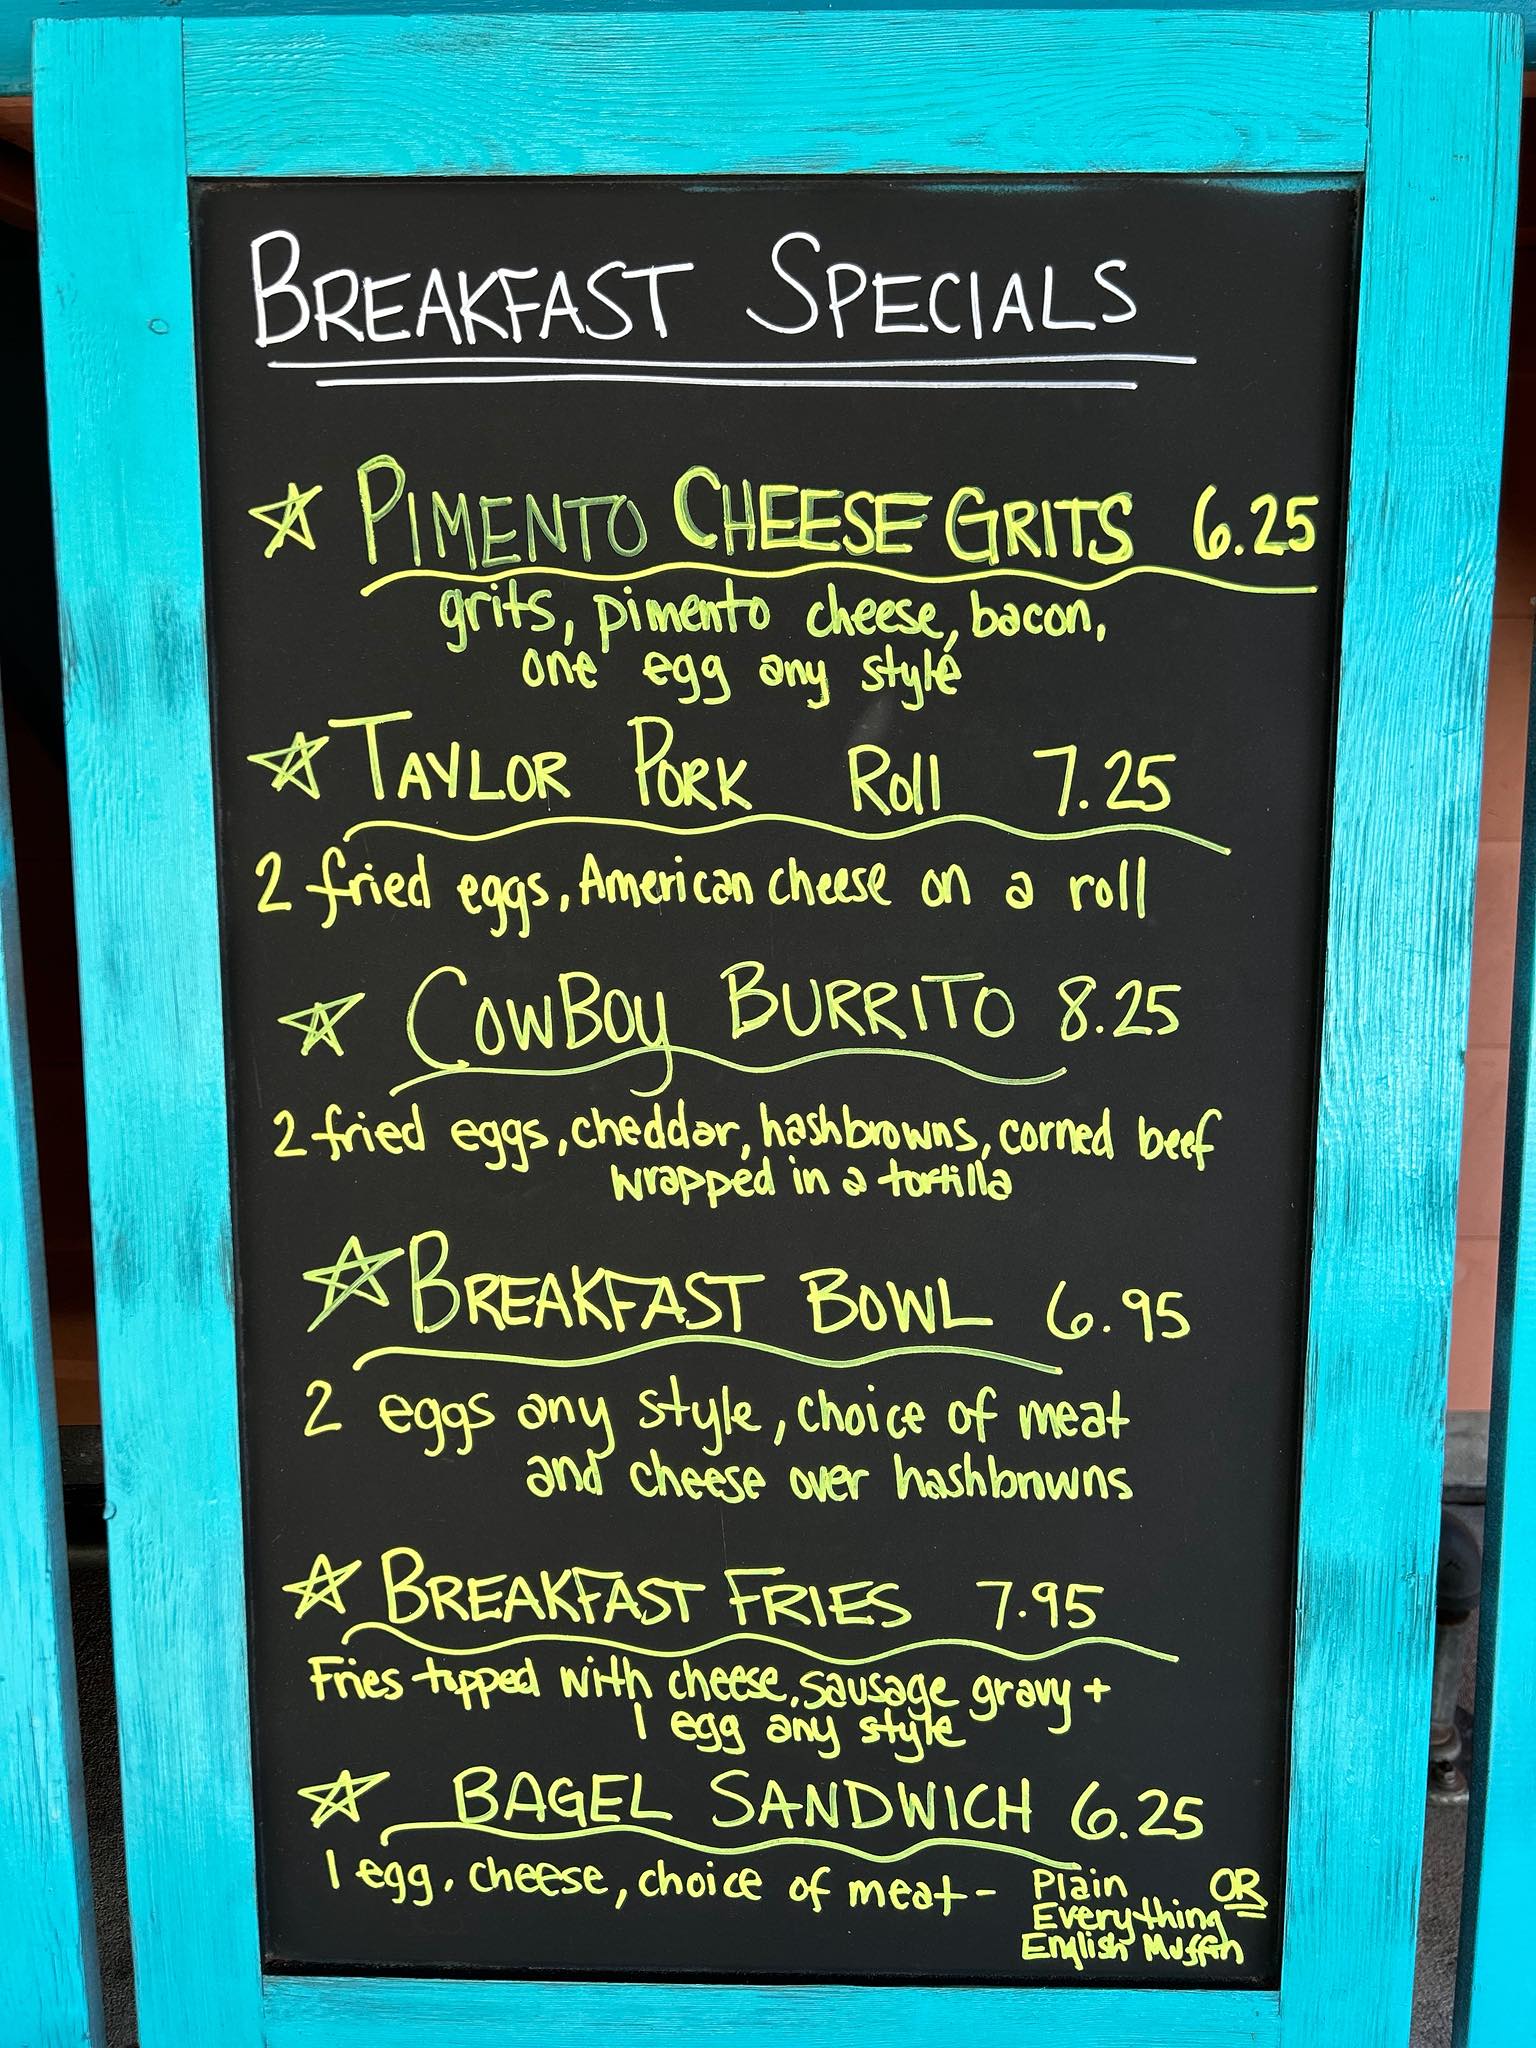 BREAKFAST SPECIALS
PIMENTO CHEESE GRITS 6.25
grits, pimento cheese, bacon,
one egg any style
TAYLOR PORK Roll 7.25
2 fried eggs, American cheese on a roll
COWBOY BURRITO 8.25
2 fried eggs, cheddar, hashbrowns, corned beef
wrapped in a tortilla
BREAKFAST BOWL 6.95
2 eggs any style, choice of meat
and cheese over hashbrowns
BREAKFAST FRIES 7.95
Fries topped with cheese, sausage gravy +
1 egg any style
BAGEL SANDWICH 6.25
1 egg, cheese, choice of meat - Plain OR
Everything
English Muffin